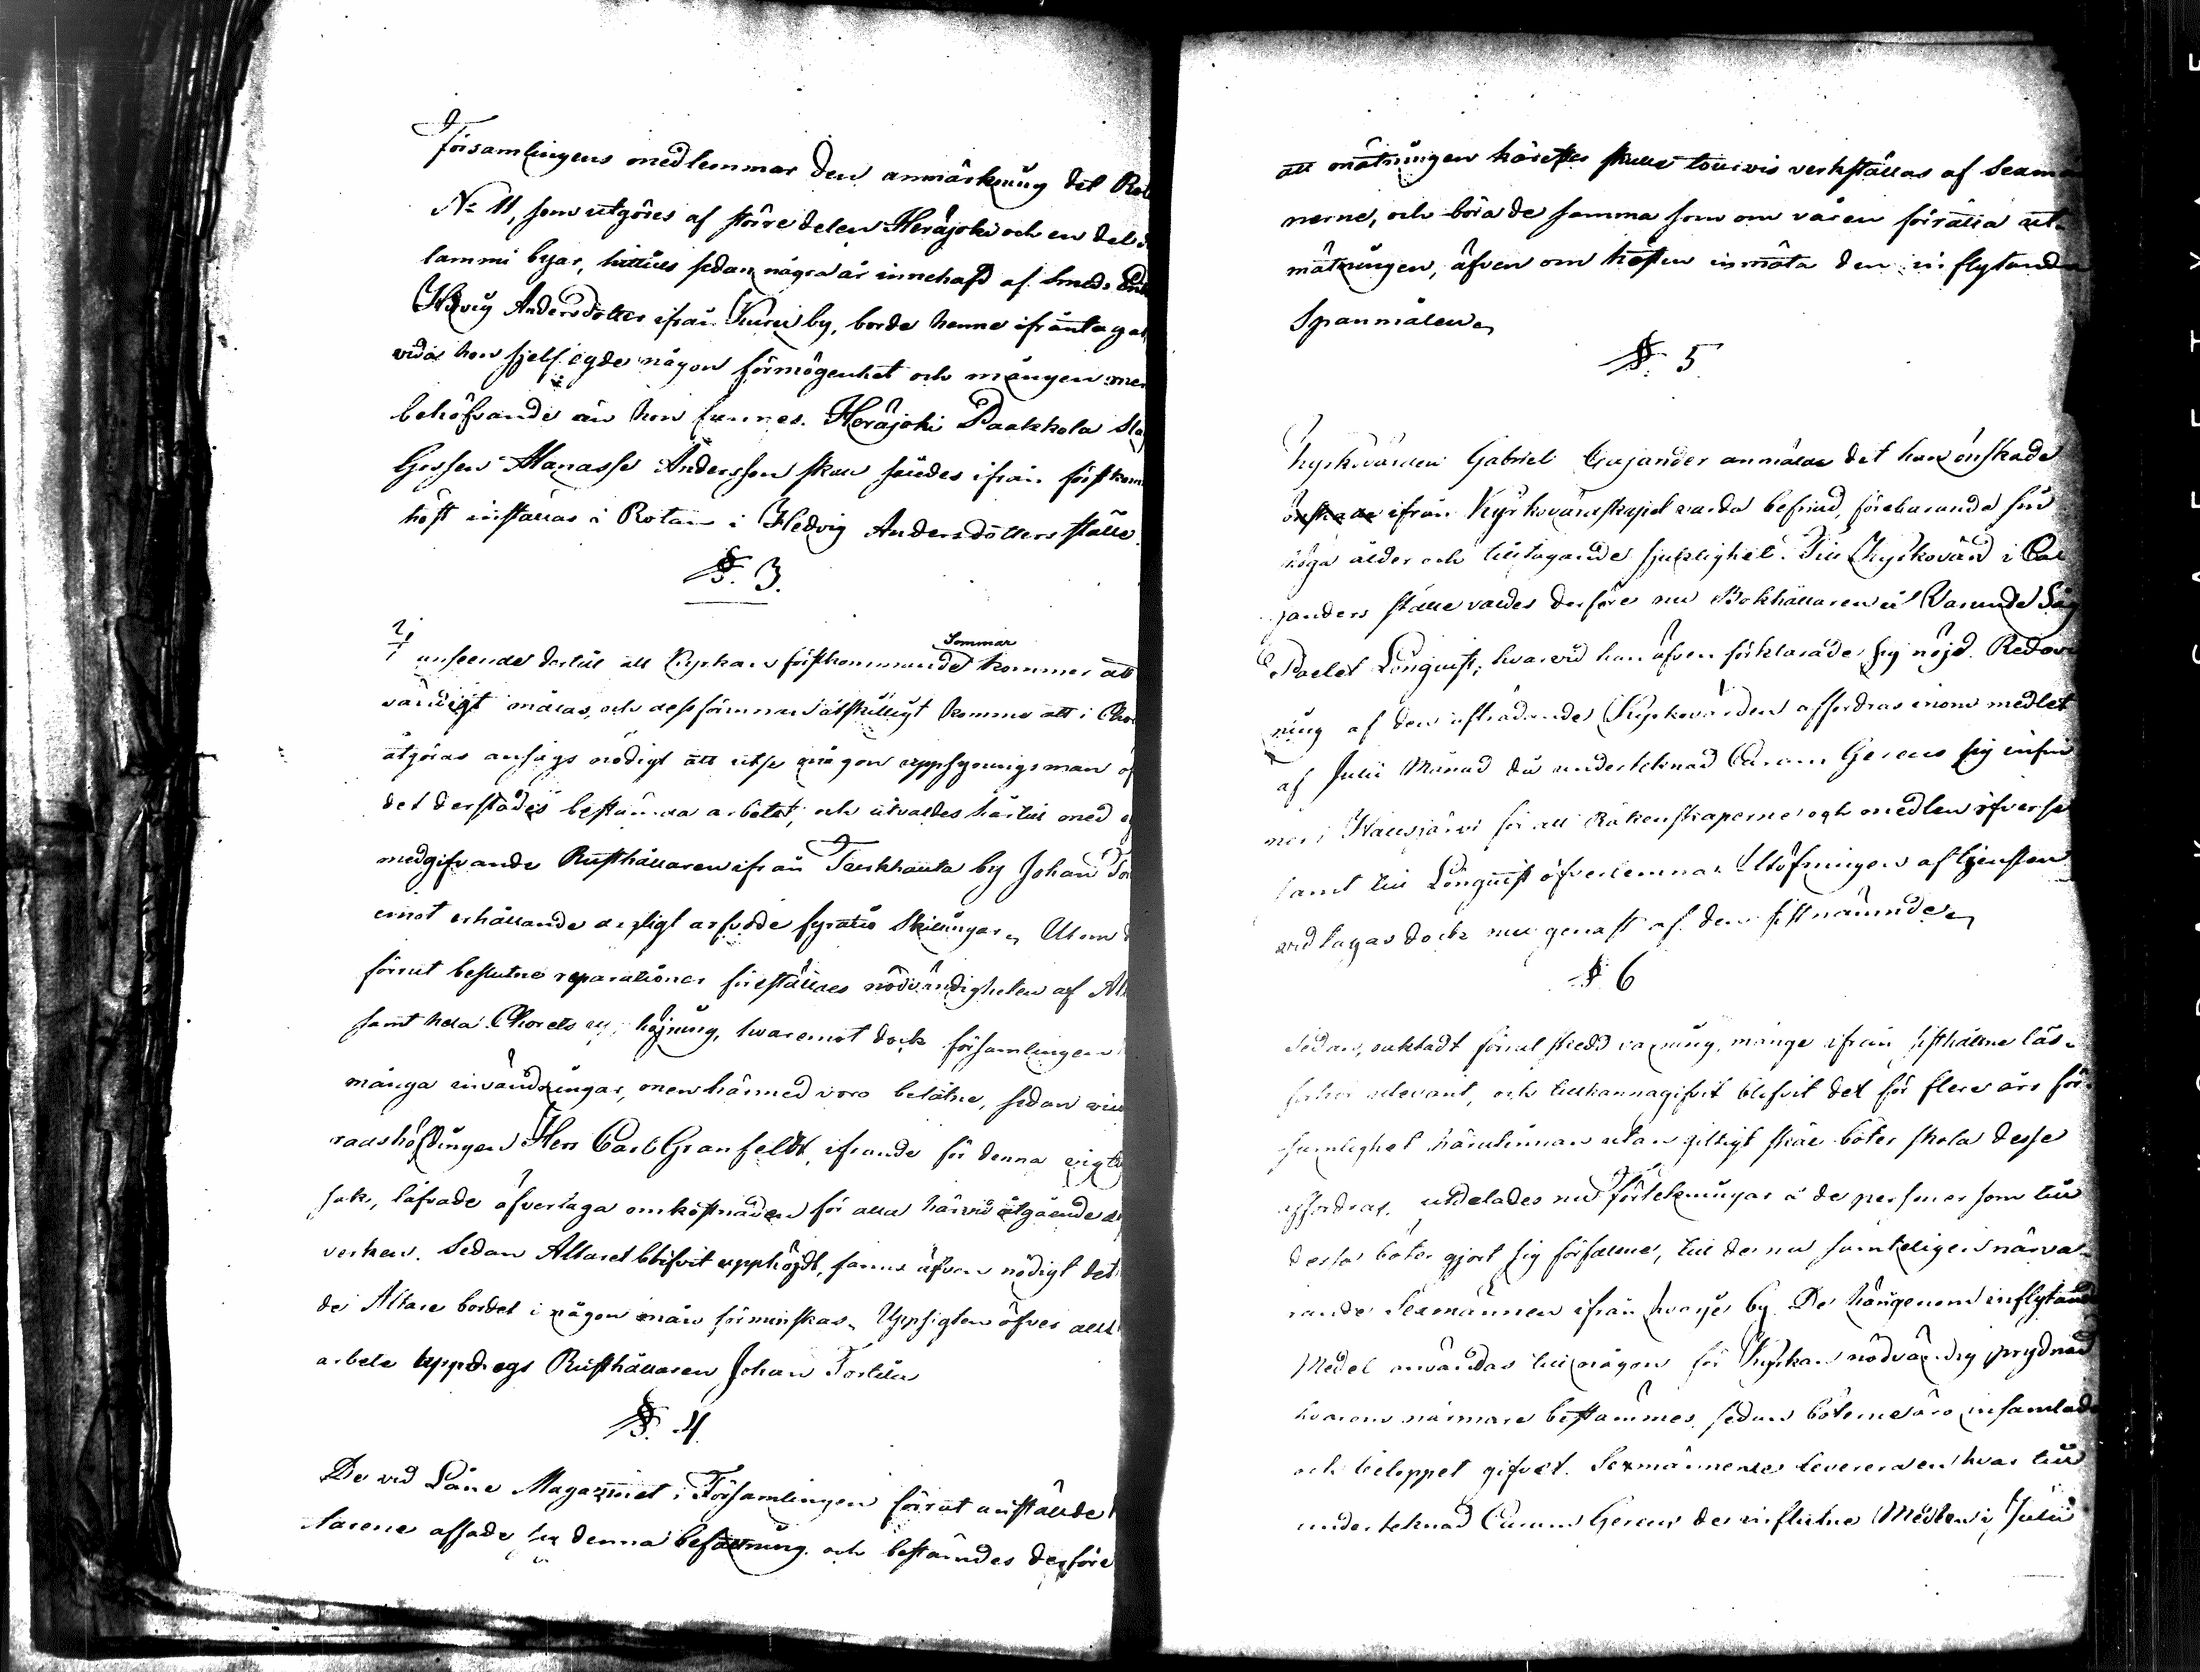 Församlingens medlemmar den anmärkning det Rot
No 11, som utgöres af större delen Heräjoki och en del
lammi byar, hittills sedan några år innehafd af Smeds Enk
Hedvig Andersdotter ifrån Kuru by, borde henne ifråntagas
vida hon sjelf ägde någon förmögenhet och mången mer
behöfvande än hon funnes. Heräjoki Paakkola
Gossen Manasse Andersson skall således ifrån förstkom
höst inställas i Rotan i Hedvig Andersdotters ställe.
§. 3.
I anseende dertill att Kyrkan förstkommande Sommar kommer att
målas, och dessförinnan åtskilligt komme att i Chor
åtgöras ansågs nödigt att utse någon uppsyningsman öf
det derstädes bestämda arbetet, och utvaldes härtill med
medgifvande Rusthållaren ifrån Turkhauta by Johan
emot erhållande dagligt arfvode fyratio Skillingar. Utom
förut beslutne reparationer föreställdes nödvändigheten af Al
samt hela Chorets höjning, hvaremot dock församlingen
många invändningar, men härmed voro belåtne, sedan
radshöfdingen Herr Carl Granfeldt, ifrande för denna vigti
sak, låfvade öfvertaga omkostnaden för allt härvid åtgående
verken. Sedan Altaret blifvit upphöjdt, fanns äfven nödigt det
de Altare bordet i någon mån förminskas. Uppsigten öfver allt
arbete uppdrogs Rusthållaren Johan
§. 4.
De vid Låne Magazinet i Församlingen förut anställde
tarene afsade sig denna befattning och bestämdes derföre
att mätningen härefter skulle tourvis verkställas af Sexmän
nerne, och böra de samma som om våren förrätta ut-
mätningen, äfven om hösten inmäta den inflytande
Spanmålen.
§. 5
Kyrkvärden Gabriel Cajander anmälde det han önskade
önskade ifrån Kyrkovärdskapet varda befriad, förebärande sin
höga ålder och tilltagande sjuklighet. Till Kyrkovärd i Ca
janders ställe valdes derföre nu Bokhållaren å Vasunda Såg
Lönquist, hvarvid han äfven förklarade sig nöjd. Redovi
ning af den afträdande Kyrkovärden affordras inom medlet
af Julii Månad då undertecknad Curam Gerens sig infin
ner i Hausjärvi för att Räkenskaperne och medlen öfverse
samt till Lönquist öfverlemna. Utöfningen af tjensten
vidtagas dock nu genast af den sistnämnde.
§ 6
Sedan, oaktadt förut skedd varning, månge ifrån sisthållne läs-
förhör utevarit, och tillkännagifvit blifvit det för flere års för
sumlighet härutinnan utan giltigt skäl böter skola desse
affordras, utdelades nu förtekningar å de personer som till
dessa böter gjort sig förfallne, till de nu samteligen närva-
rande Sexmännen ifrån hvarje by. De härigenom inflytande
Medel användas till någon för Kyrkan nödvändig prydnad
hvarom närmare bestämmes sedan böterne äro insamlade
och beloppet gifvet. Sexmännerne levererar en hvar till
undertecknad Curam Gerens de influtne Medlen i Julii